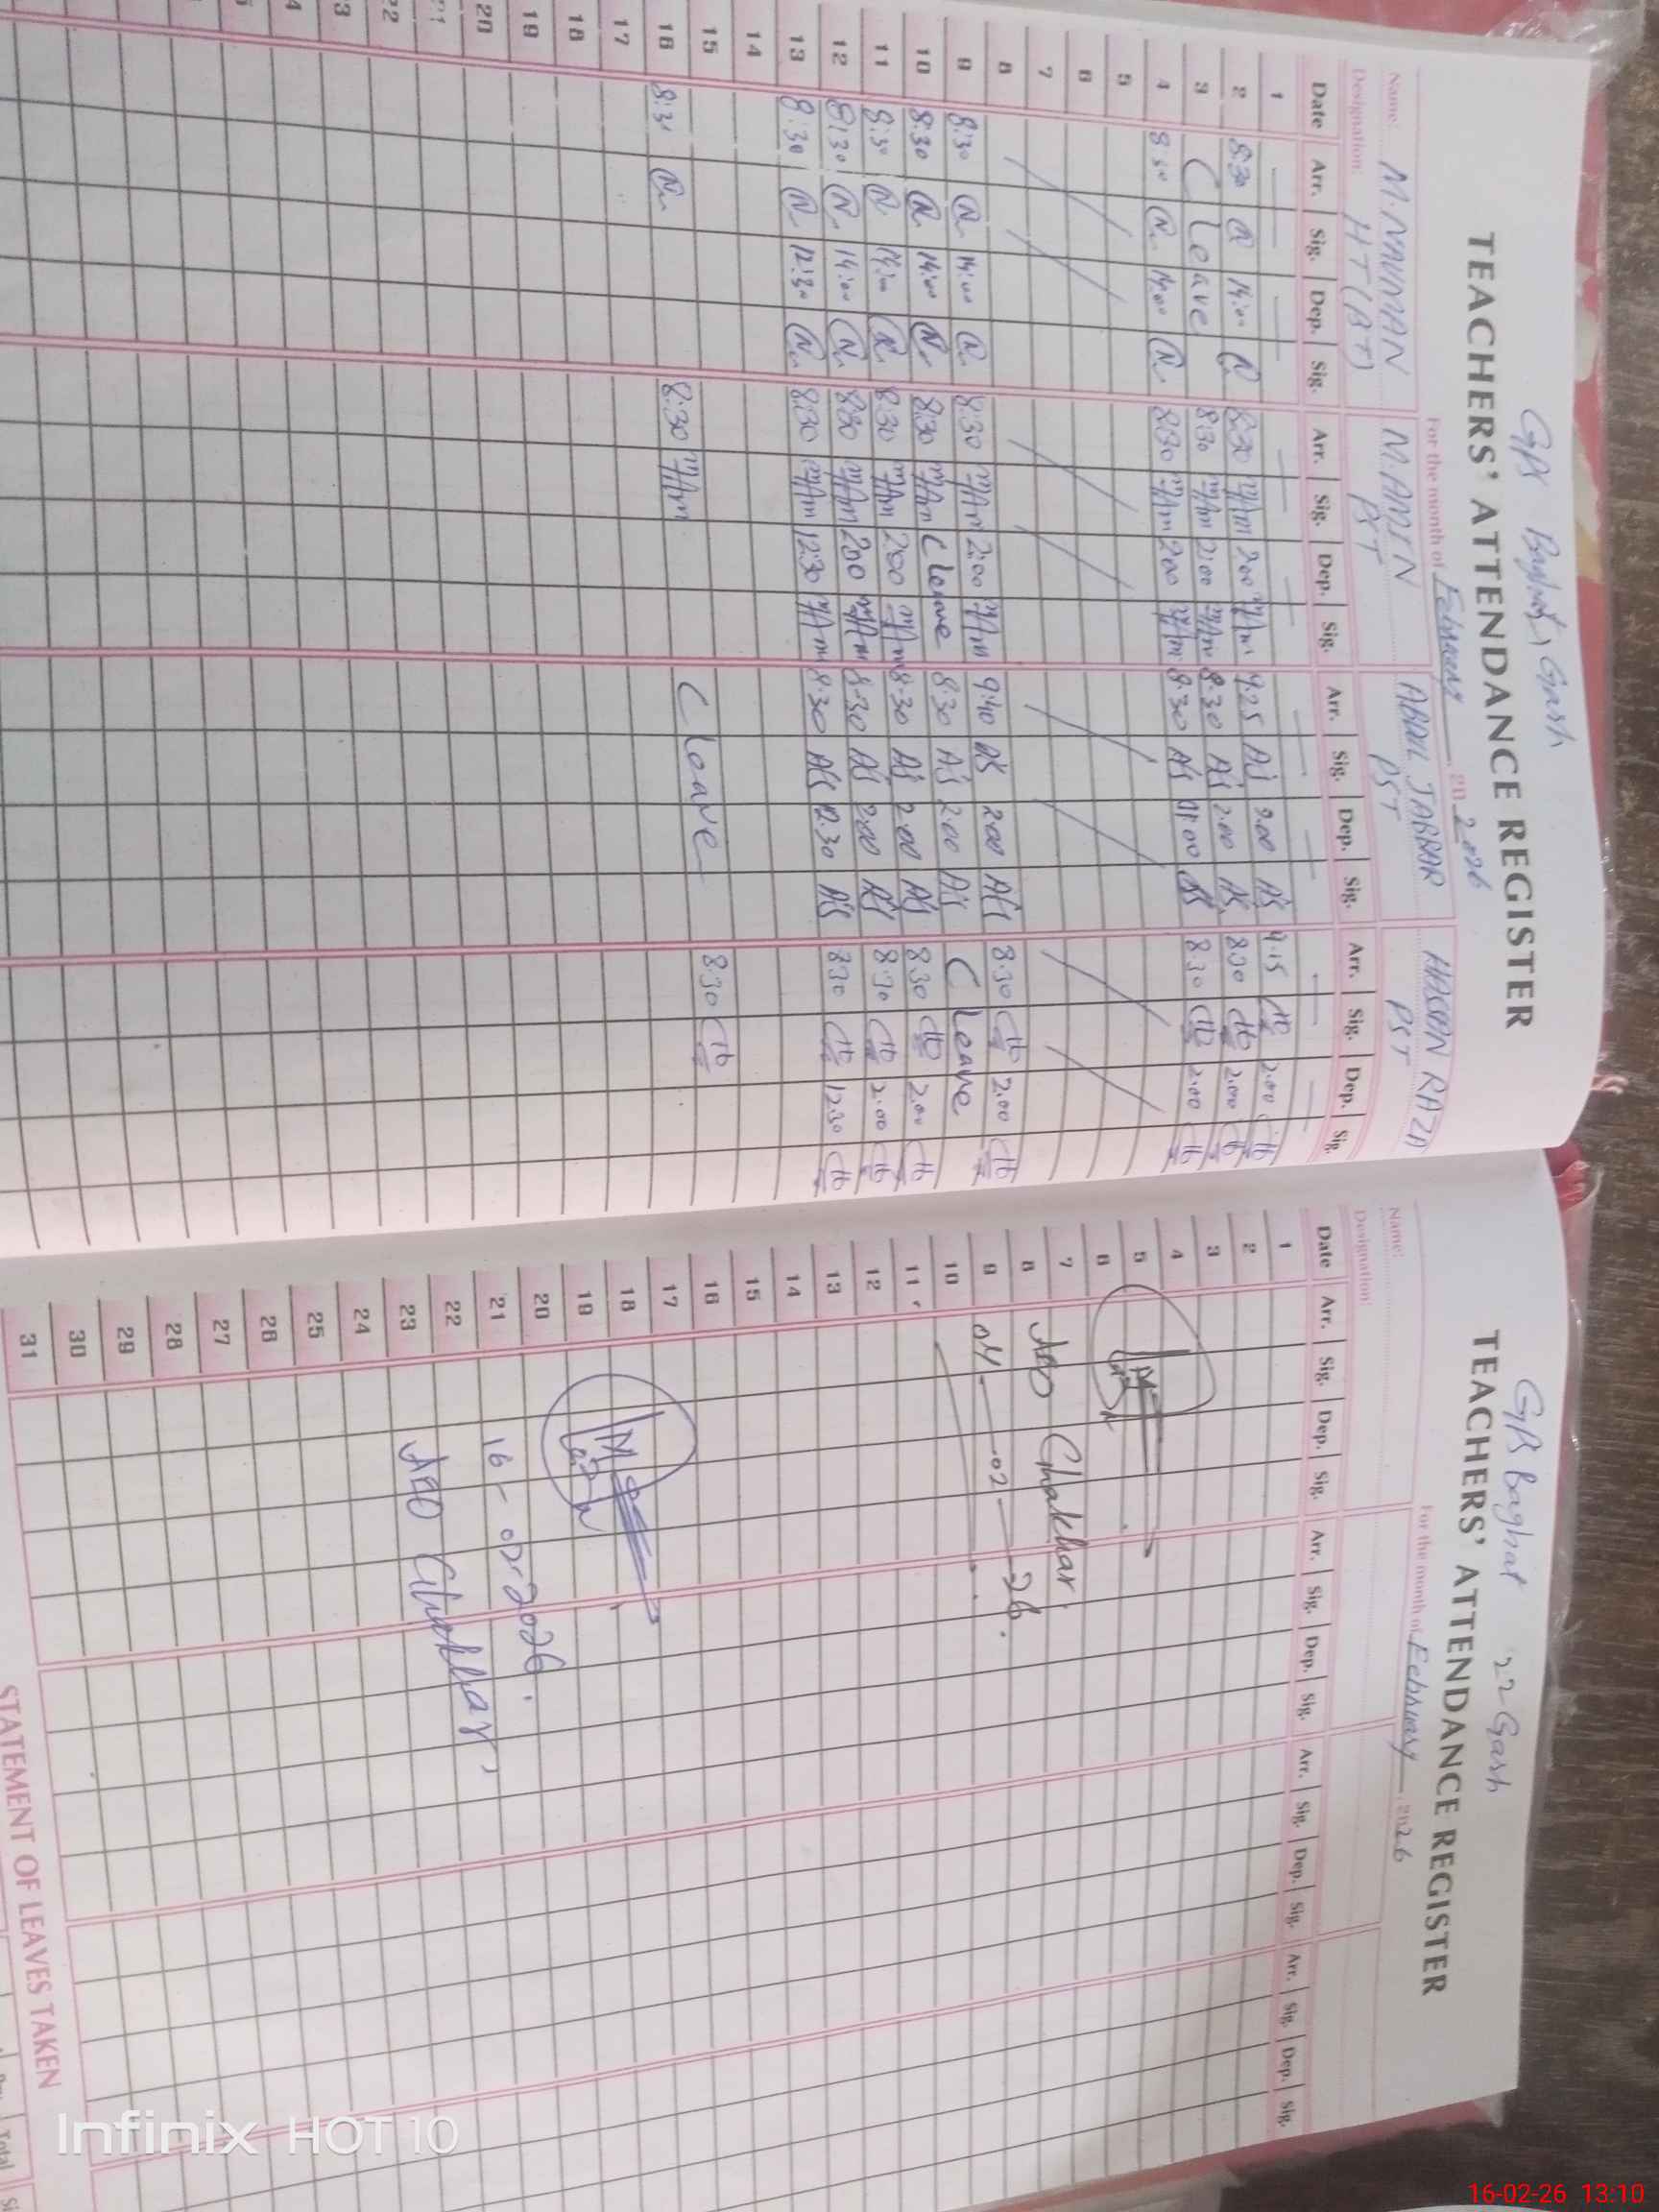 TEACHERS' ATTENDANCE REGISTER
For the month of February 20 2026
Name: M. NAUMAN M. AMIN ABDUL JABBAR HASSAN RAZA
Designation: HT (BT) PST PST PST
Date Arr. Sig. Dep. Sig. Arr. Sig. Dep. Sig. Arr. Sig. Dep. Sig. Arr. Sig. Dep. Sig.
1
2 8:30 14:00 8:30 2:00 9:25 AJ 2:00 AJ 9.15 2.00
3 C leave 8:30 2:00 8:30 AJ 2.00 AJ 8:30 2.00
4 8:30 14:00 8:30 2:00 8:30 AJ AJ 8:30 2.00
5
6
7
8
9 8:30 14:00 8:30 2:00 9:40 AJ 2:00 AJ 8:30 2.00
10 8:30 14:00 8:30 C leave 8:30 AJ 2:00 AJ C leave
11 8:30 14:00 8:30 2:00 8:30 AJ 2:00 AJ 8:30 2.00
12 8:30 14:00 8:30 2:00 8:30 AJ 2:00 AJ 8:30 2.00
13 8:30 12:30 8:30 12:30 8:30 AJ 12:30 AJ 8:30 12:30
14
15
16 8:30 8:30 C leave 8:30
17
18
19
20
21
22
GB Baghat 22 Gash
TEACHERS' ATTENDANCE REGISTER
For the month of February, 2026
Name:
Designation:
Date Arr. Sig. Dep. Sig. Arr. Sig. Dep. Sig. Arr. Sig. Dep. Sig. Arr. Sig. Dep. Sig.
1
2
3
4
5
6
7
8 AEO Ghakhar
9 04 - 02 - 26.
10
11
12
13
14
15
16
17
18
19
20
21 16-02-2026.
22
23 AEO Ghakhar
24
25
26
27
28
29
30
31
STATEMENT OF LEAVES TAKEN
Total
Infinix HOT 10
16-02-26 13:10